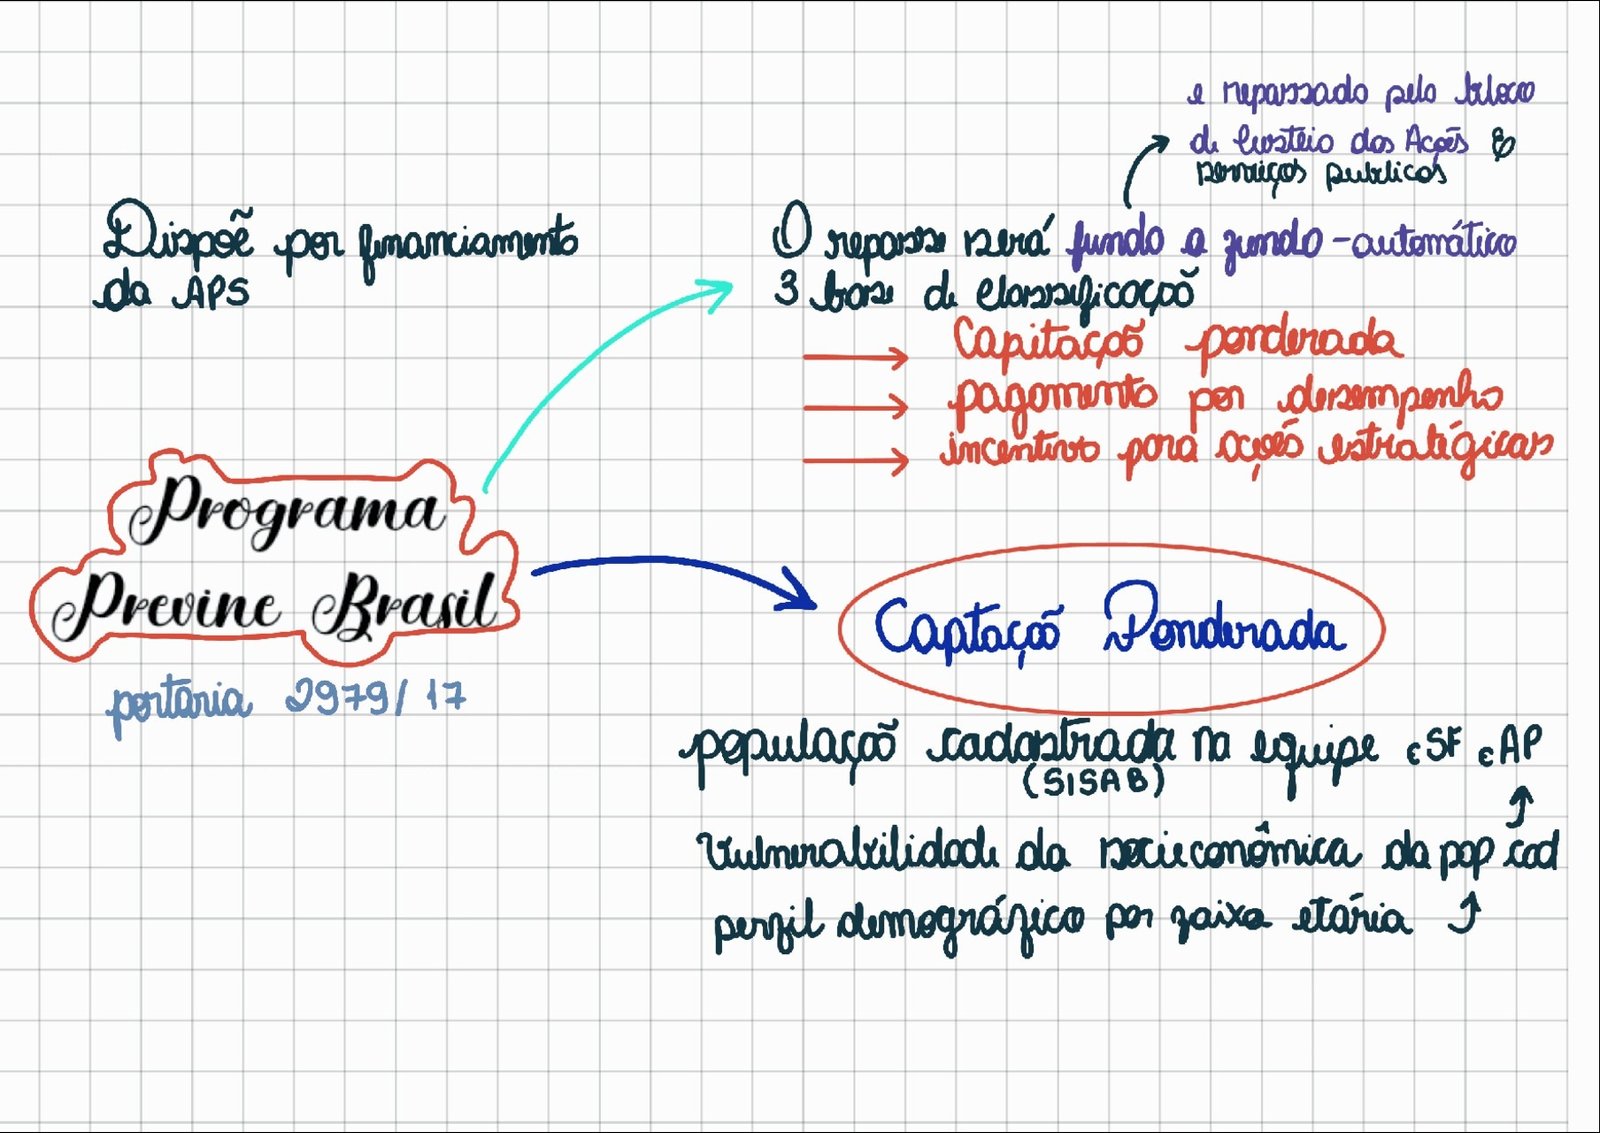 e repassado pelo bloco
de Custeio das Ações e
serviços publicos
Dispõe por financiamento
da APS
O repasse será fundo a fundo - automático
3 base de classificação
Capitação ponderada
pagamento por desempenho
incentivo para ações estratégicas
Programa
Previne Brasil
portaria 2979/17
Captação Ponderada
população cadastrada na equipe eSF eAP
(SISAB)
Vulnerabilidade da socieconômica da pop cad
perfil demográfico por faixa etária